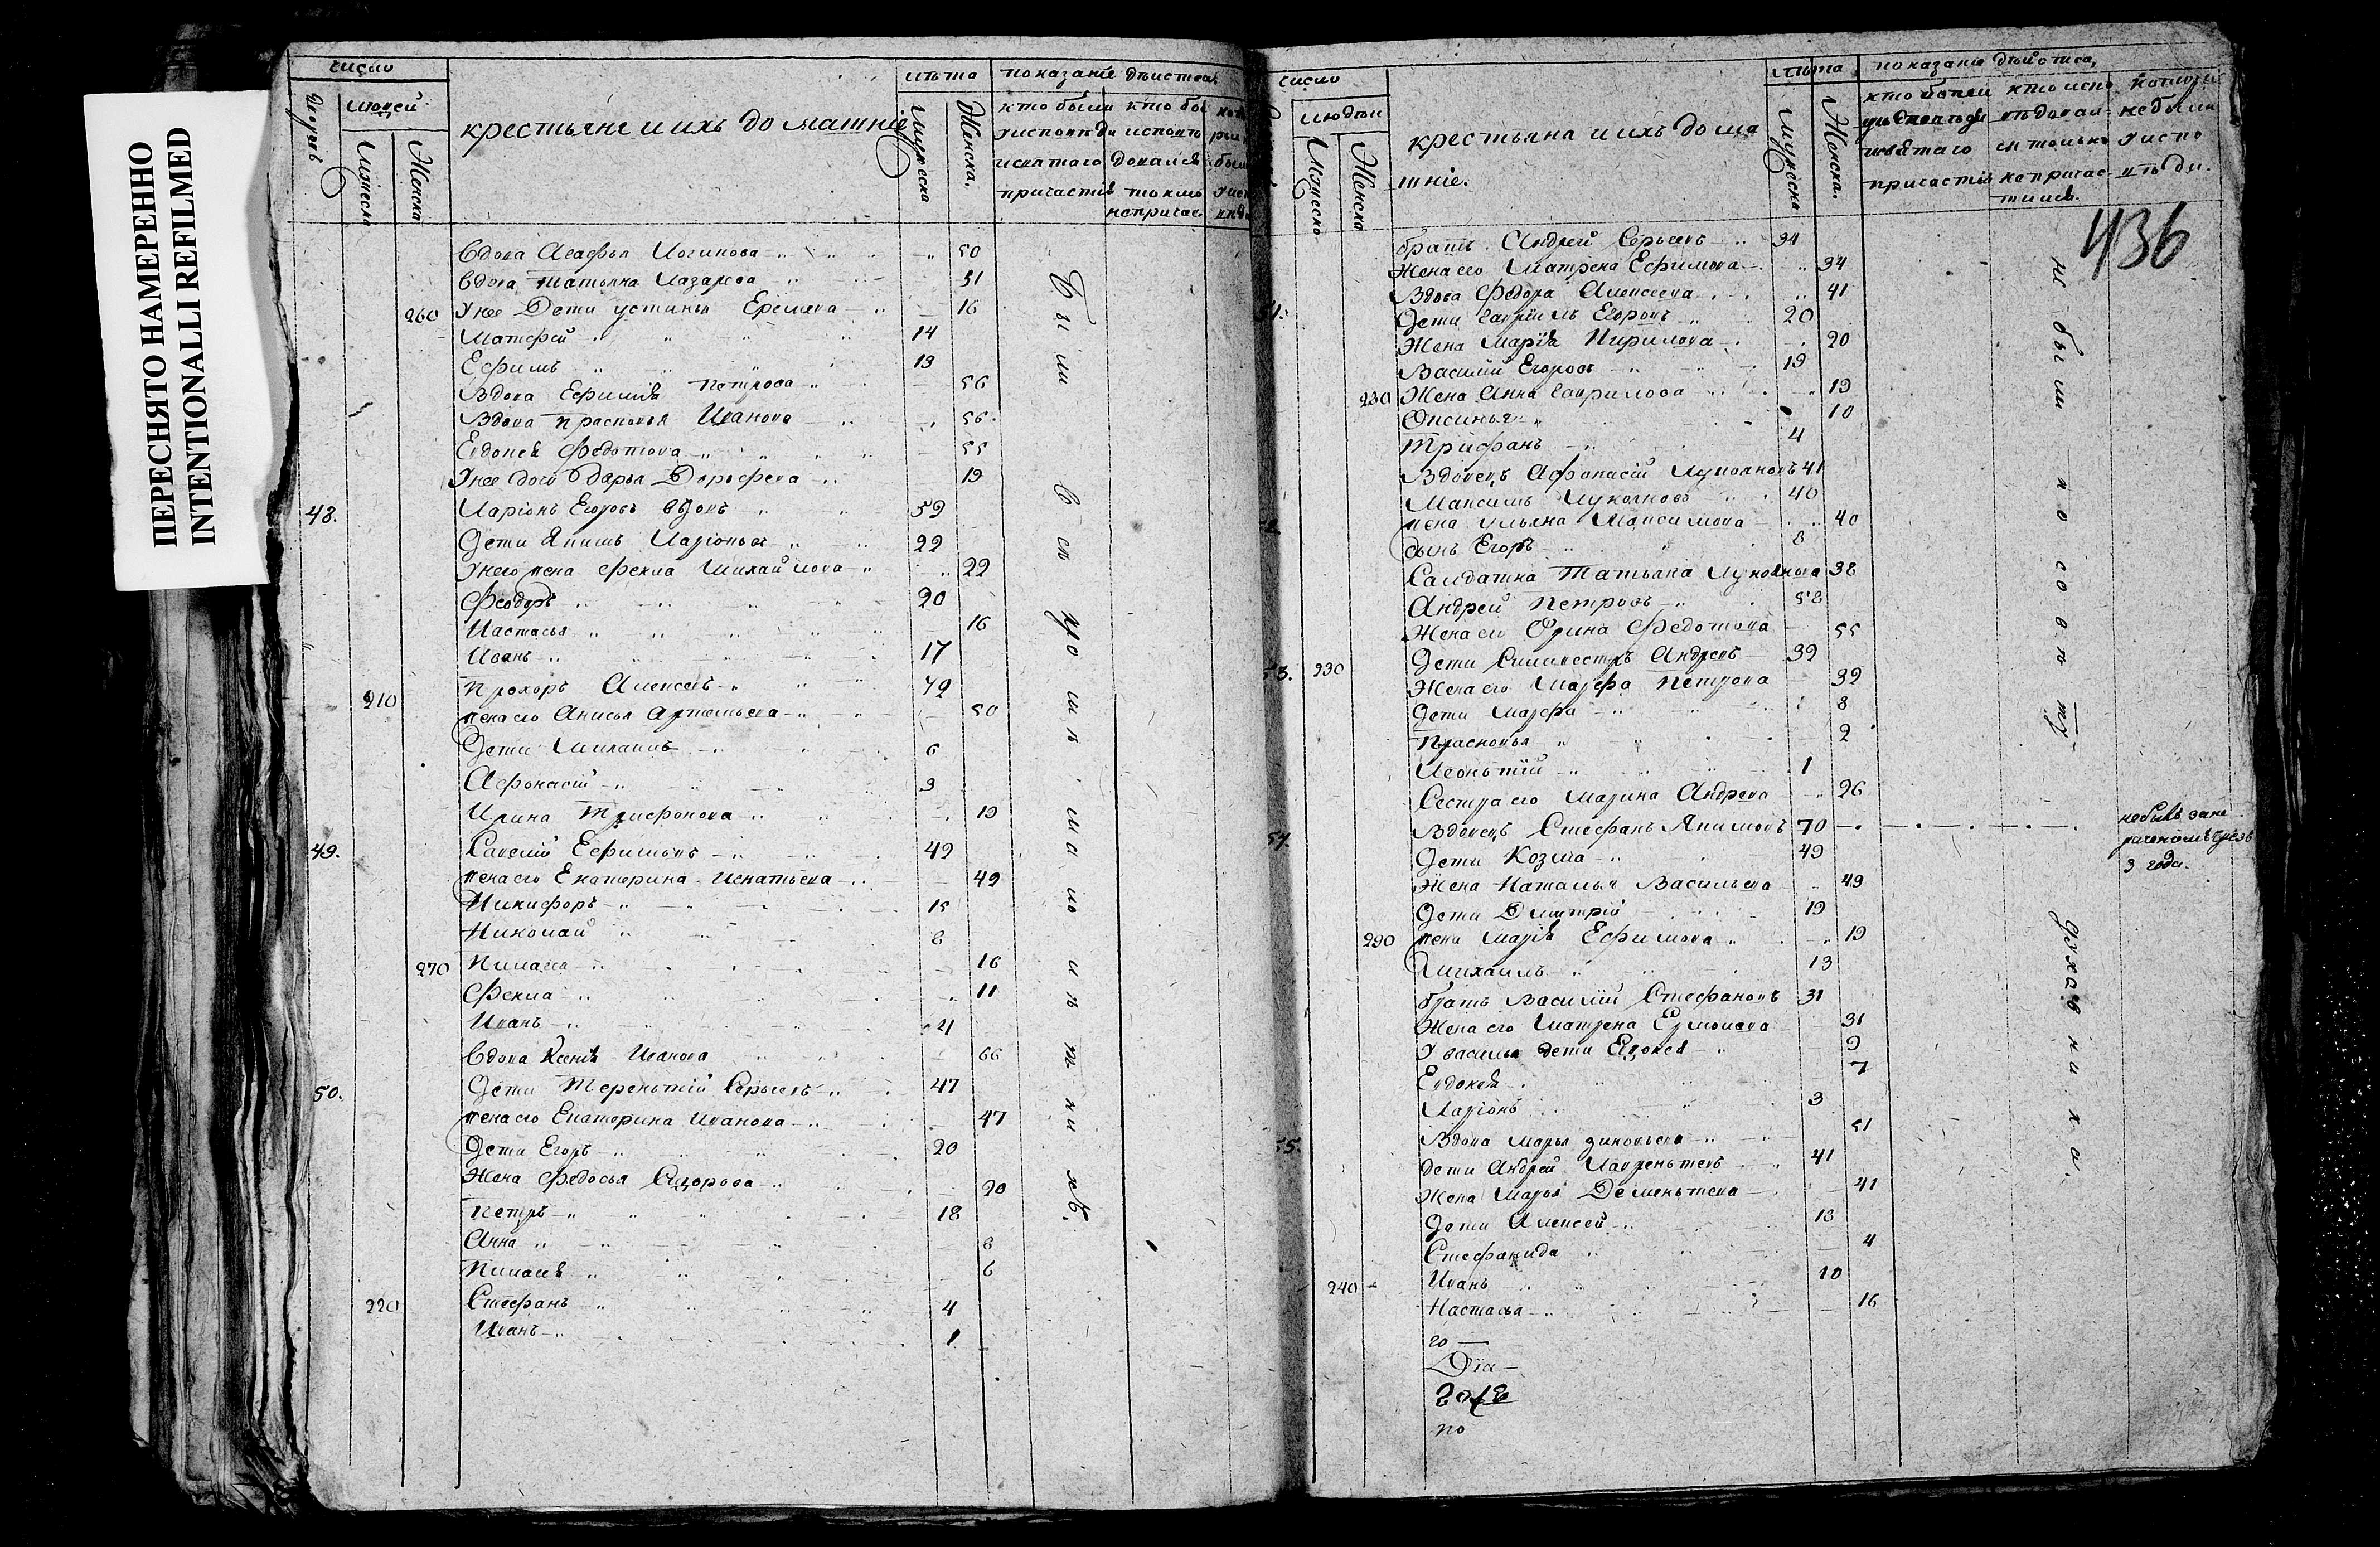 ПЕРЕСНЯТО НАМЕРЕННО
INTENTIONALLI REFILMED
число
дворовъ
людей
Мужеска
Женска
крестьяне и ихъ домашніе
лѣта
Мужеска
Женска.
показаніе дѣйства
кто были
у исповѣди
и святаго
причастія
кто бы
исповѣ
дался
токмо
непричас.
Вдова Агафья Логинова 50
Вдова Татьяна Лазарева 51
260 У нее Дети устинья Еремѣева 16
Матфей 14
Ефимъ 13
Вдова Ефимія Петрова 56
Вдова Прасковья Иванова 56
Евдокея Федотова 55
У нее дочь Дарья Дорофеева 19
48. Ларіонъ Егоровъ вдовъ 59
Дети Якимъ Ларіоновъ 22
У него жена Фекла Михайлова 22
Феодоръ 20
Настасья 16
Иванъ 17
210 Прохоръ Алексеевъ 49
жена его Анисья Артемьева 50
Дети Михаилъ 6
Афонасій 3
Ирина Трифонова 19
49. Савелій Ефимовъ 49
жена его Екатерина Игнатьева 49
Никифоръ 15
Николай 8
270 Пилагея 16
Фекла 11
Иванъ 4
Вдова Ксенія Иванова 66
50. Дети Терентій Сергеевъ 47
жена его Екатерина Иванова 47
Дети Егоръ 20
Жена Федосья Сидорова 20
Петръ 18
Анна 8
Пилагея 6
220 Стефанъ 4
Иванъ 1
Были
число
людей
Мужеска
Женска
крестьяне и ихъ дома
шніе.
лѣта
Мужеска
Женска.
показаніе дѣйства,
кто были
у исповѣди
и святаго
причастія
кто испо
вѣдовал
ся только
не причас
тился.
которыи
не были
у испо
вѣди.
436
братъ Андрей Сергеевъ 34
Жена его Матрена Ефимова 34
Вдова Федора Алексеева 41
51. Дети Гаврилъ Егоровъ 20
Жена Марія Кирилова 20
Василій Егоровъ 19
280 Жена Анна Гаврилова 19
Оксинья 10
Трифанъ 4
Вдовецъ Афонасій Лукояновъ 41
Максимъ Лукояновъ 40
жена Ульяна Максимова 40
сынъ Егоръ 8
Салдатка Татьяна Лукоянова 38
Андрей Петровъ 58
Жена его Орина Федотова 55
53. 230 Дети Силивестръ Андреевъ 39
Жена его Марфа Петрова 39
Дети Марфа 8
Прасковья 2
Леонътій 1
Сестра его Марина Андреева 26
54. Вдовецъ Стефанъ Якимовъ 70
3 года.
Дети Козма 49
Жена Наталья Васильева 49
Дети Дмитрій 19
290 жена Марія Ефимова 19
Михаилъ 13
братъ Василій Стефановъ 31
Жена его Матрена Ермолаева 31
У василья дети Евдокея 9
Евдокея 7
Ларіонъ 3
55. Вдова Марья Зиновьева 51
дети Андрей Лаврентьевъ 41
Жена Марья Дементьева 41
Дети Алексей 18
Стефанида 4
240 Иванъ 10
Настасья 16
не были по совѣту
духовника.
го
по